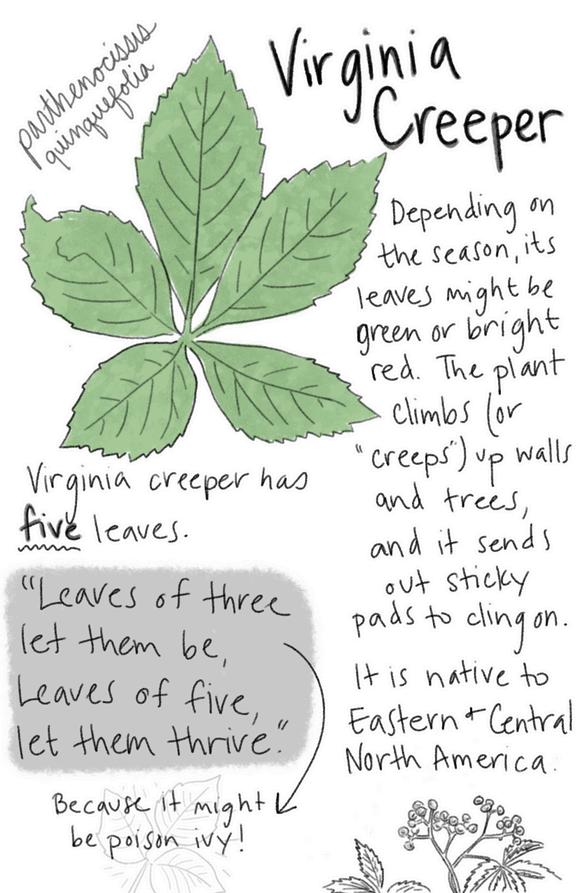 parthenocissis
quinquefolia
Virginia
Creeper
Depending on
the season, its
leaves might be
green or bright
red. The plant
climbs (or
"creeps") up walls
and trees,
and it sends
out sticky
pads to cling on.
It is native to
Eastern + Central
North America.
Virginia creeper has
five leaves.
"Leaves of three
let them be,
Leaves of five,
let them thrive."
Because it might
be poison ivy!